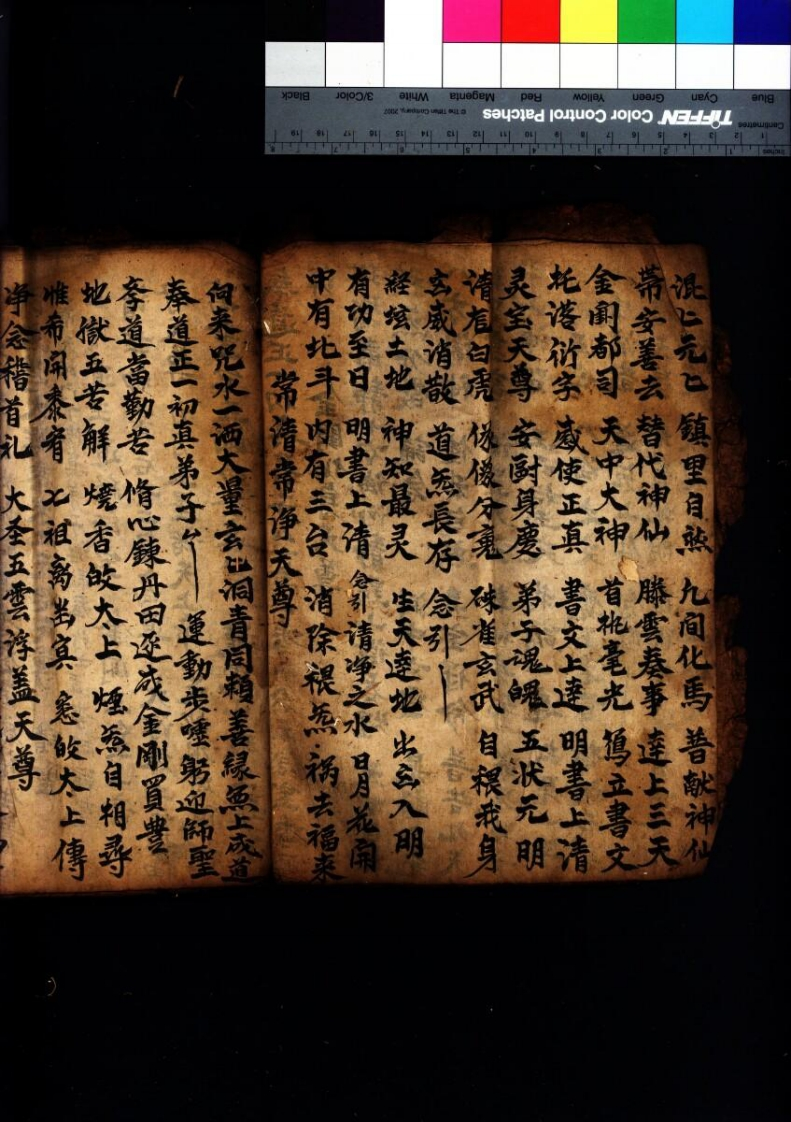 混〻元〻 鎮里自然 九间化馬 普献神仙
蒂安善去 替代神仙 滕雲奏事 達上三天
金闕都司 天中大神 首桃毫光 馬立書文
托落衍字 威使正真 書文上達 明書上清
灵宝天尊 安尉身慶 弟子魂魄 五状元明
清龙白虎 俵俵分亮 硃雀玄武 自裉我身
玄威消散 道炁長存 念引
経坛土地 神知最灵 生天達地 出玄入明
有功至日 明書上清 念引 清净之水 日月花開
中有北斗 内有三台 消除裉炁 祸去福来
常清常净天尊
向来咒水一洒大量玄〻洞青同賴善緣無上成道
奉道正一初真弟子 運動步嚏躬迎師聖
孝道當勤苦 脩心鍊丹田 逐成金剛買豊
地獄五苦解 燒香皈太上 煙炁自相尋
惟希開泰宥 七祖离幽冥 急皈太上傳
净念稽首礼 大圣五雲浮盖天尊
TIFFEN Color Control Patches
© The Tiffen Company, 2007
Blue Cyan Green Yellow Red Magenta White 3/Color Black
Centimetres
Inches